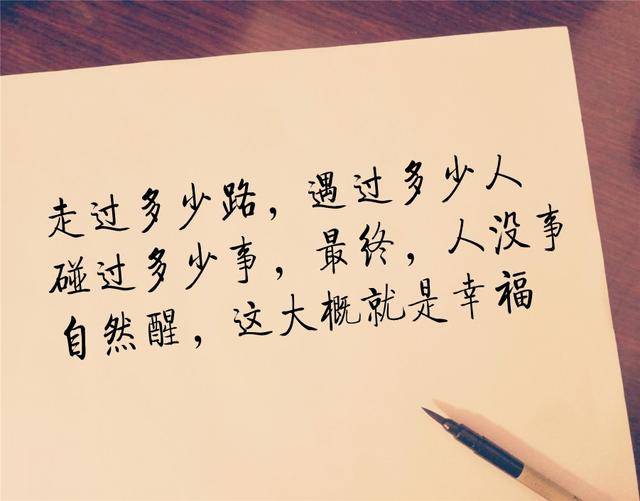 走过多少路，遇过多少人
碰过多少事，最终，人没事
自然醒，这大概就是幸福